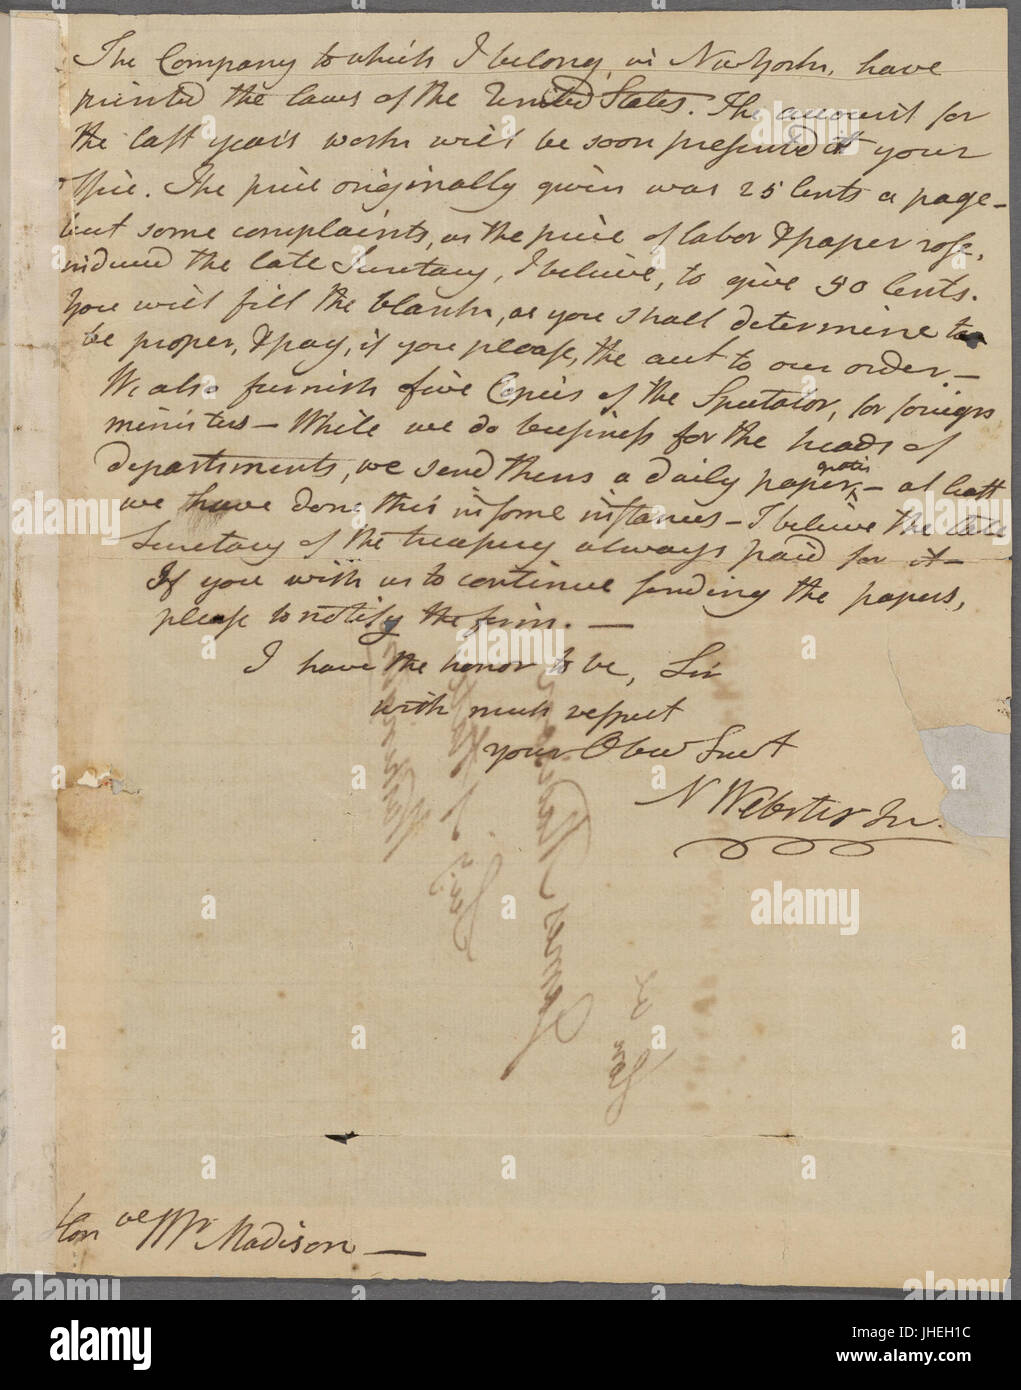 The Company to which I belong, in New York, have
printed the laws of the United States. The account for
the last year's work will be soon presented at your
office. The price originally given was 25 Cents a page—
but some complaints, as the price of labor & paper rose,
induced the late Secretary, I believe, to give 50 Cents.
You will fill the blank, as you shall determine to
be proper, & pay, if you please, the amt to our order.—
We also furnish five Copies of the Spectator, for foreign
ministers— While we do business for the heads of
departments, we send them a daily paper gratis— at least
we have done this in some instances— I believe the late
Secretary of the treasury always paid for it—
If you wish us to continue sending the papers,
please to notify the firm.—
I have the honor to be, Sir
with much respect
your Obed Servt
N Webster Jun.
Honble Mr Madison—
alamy
Image ID: JHEH1C
www.alamy.com